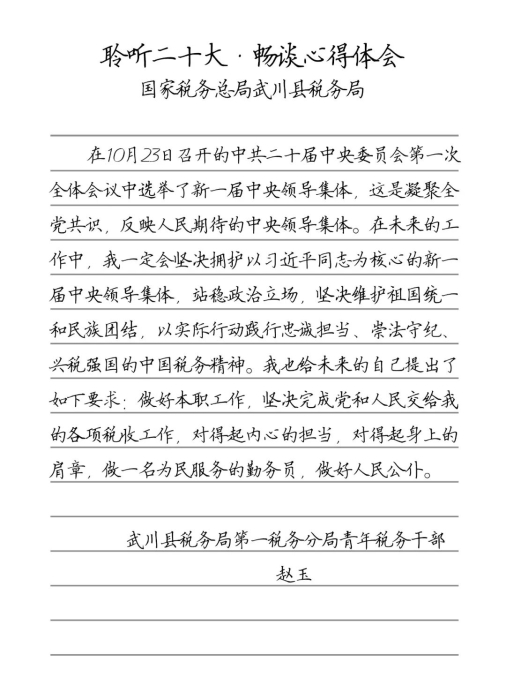 聆听二十大·畅谈心得体会
国家税务总局武川县税务局
在10月23日召开的中共二十届中央委员会第一次
全体会议中选举了新一届中央领导集体，这是凝聚全
党共识，反映人民期待的中央领导集体。在未来的工
作中，我一定会坚决拥护以习近平同志为核心的新一
届中央领导集体，站稳政治立场，坚决维护祖国统一
和民族团结，以实际行动践行忠诚担当、崇法守纪、
兴税强国的中国税务精神。我也给未来的自己提出了
如下要求：做好本职工作，坚决完成党和人民交给我
的各项税收工作，对得起内心的担当，对得起身上的
肩章，做一名为民服务的勤务员，做好人民公仆。
武川县税务局第一税务分局青年税务干部
赵玉